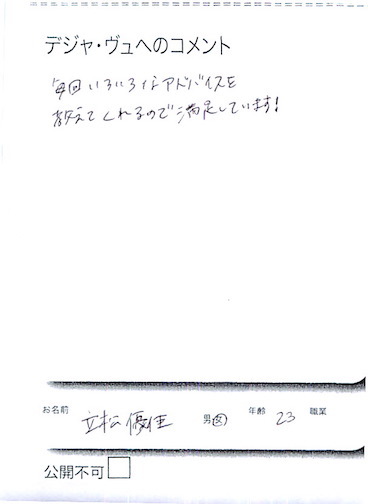 デジャ・ヴュへのコメント
毎回いろいろなアドバイスを
教えてくれるので満足しています!
お名前 立松優佳 男・女 年齢 23 職業
公開不可